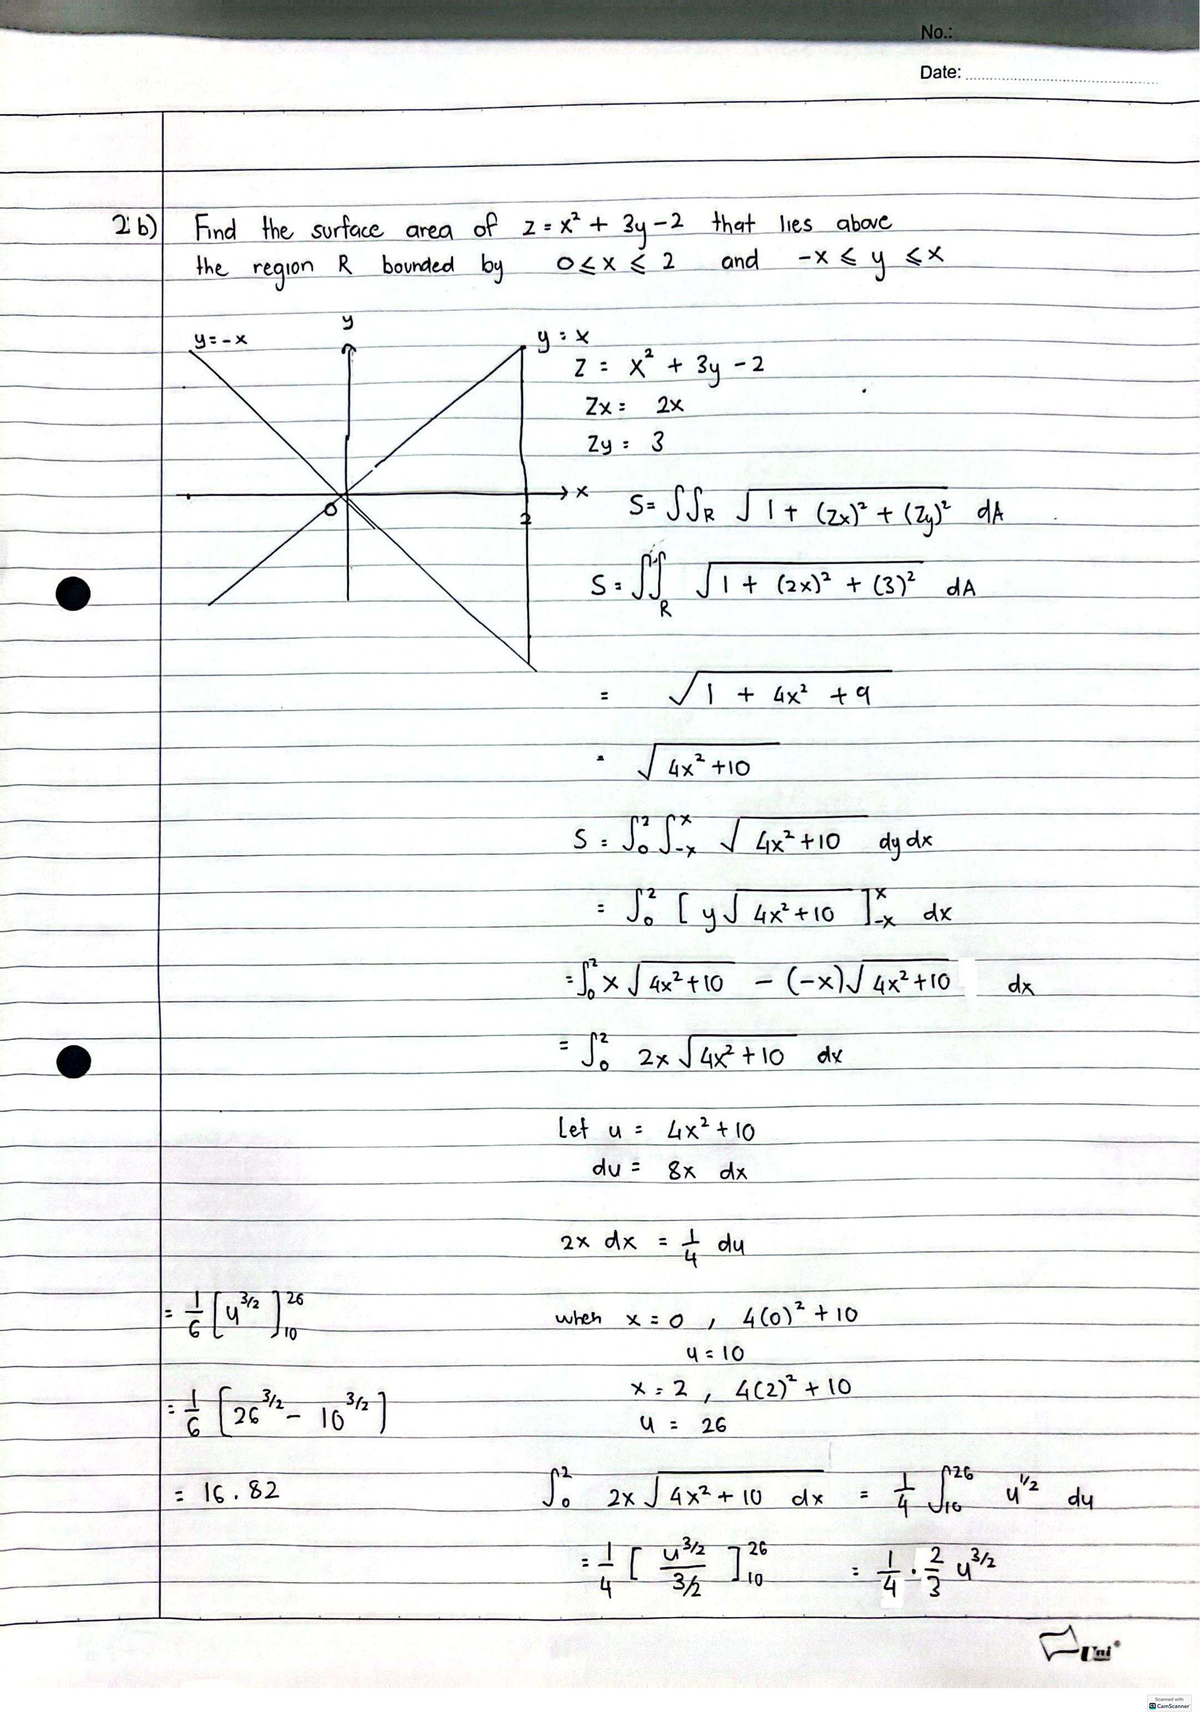 No.:
Date:
2b) Find the surface area of z = x² + 3y - 2 that lies above
the region R bounded by 0 ≤ x ≤ 2 and -x ≤ y ≤ x
y
y = -x
y = x
x
0
2
z = x² + 3y - 2
Zx = 2x
Zy = 3
S = ∫∫R √(1 + (Zx)² + (Zy)²) dA
S = ∫∫R √(1 + (2x)² + (3)²) dA
= √(1 + 4x² + 9)
= √(4x² + 10)
S = ∫₀² ∫₋ₓˣ √(4x² + 10) dy dx
= ∫₀² [y√(4x² + 10)]₋ₓˣ dx
= ∫₀² x√(4x² + 10) - (-x)√(4x² + 10) dx
= ∫₀² 2x√(4x² + 10) dx
Let u = 4x² + 10
du = 8x dx
2x dx = 1/4 du
when x = 0, 4(0)² + 10
u = 10
x = 2, 4(2)² + 10
u = 26
∫₀² 2x√(4x² + 10) dx = 1/4 ∫₁₀²⁶ u^1/2 du
= 1/4 [u^3/2 / 3/2]₁₀²⁶ = 1/4 · 2/3 u^3/2
= 1/6 [u^3/2]₁₀²⁶
= 1/6 [26^3/2 - 10^3/2]
= 16.82
Uni
Scanned with
CS CamScanner